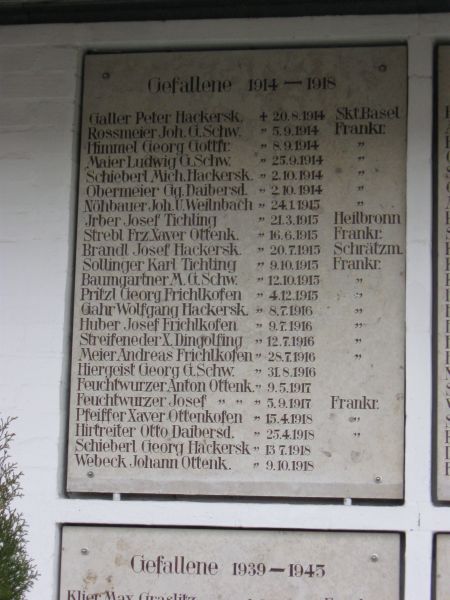 Gefallene 1914 — 1918
Galler Peter Hackersk. + 20.8.1914 Skt.Basel
Rossmeier Joh. G. Schw. " 5.9.1914 Frankr.
Himmel Georg Gottfr. " 8.9.1914 "
Maier Ludwig G. Schw. " 25.9.1914 "
Schieberl Mich. Hackersk. " 2.10.1914 "
Obermeier Gg. Daibersd. " 2.10.1914 "
Nöhbauer Joh. U. Weilnbach " 24.1.1915 "
Jrber Josef Tichling " 21.3.1915 Heilbronn
Strebl Frz. Xaver Ottenk. " 16.6.1915 Frankr.
Brandl Josef Hackersk. " 20.7.1915 Schrätzm.
Sollinger Karl Tichling " 9.10.1915 Frankr.
Baumgartner M. G. Schw. " 12.10.1915 "
Pritzl Georg Frichlkofen " 4.12.1915 "
Gahr Wolfgang Hackersk. " 8.7.1916 "
Huber Josef Frichlkofen " 9.7.1916 "
Streifeneder X. Dingolfing " 12.7.1916 "
Meier Andreas Frichlkofen " 28.7.1916 "
Hiergeist Georg G. Schw. " 31.8.1916
Feuchtwurzer Anton Ottenk. " 9.5.1917
Feuchtwurzer Josef " " " 5.9.1917 Frankr.
Pfeiffer Xaver Ottenkofen " 15.4.1918 "
Hirtreiter Otto Daibersd. " 25.4.1918 "
Schieberl Georg Hackersk " 13.7.1918
Webeck Johann Ottenk. " 9.10.1918
Gefallene 1939 — 1945
Klier Max Graslitz